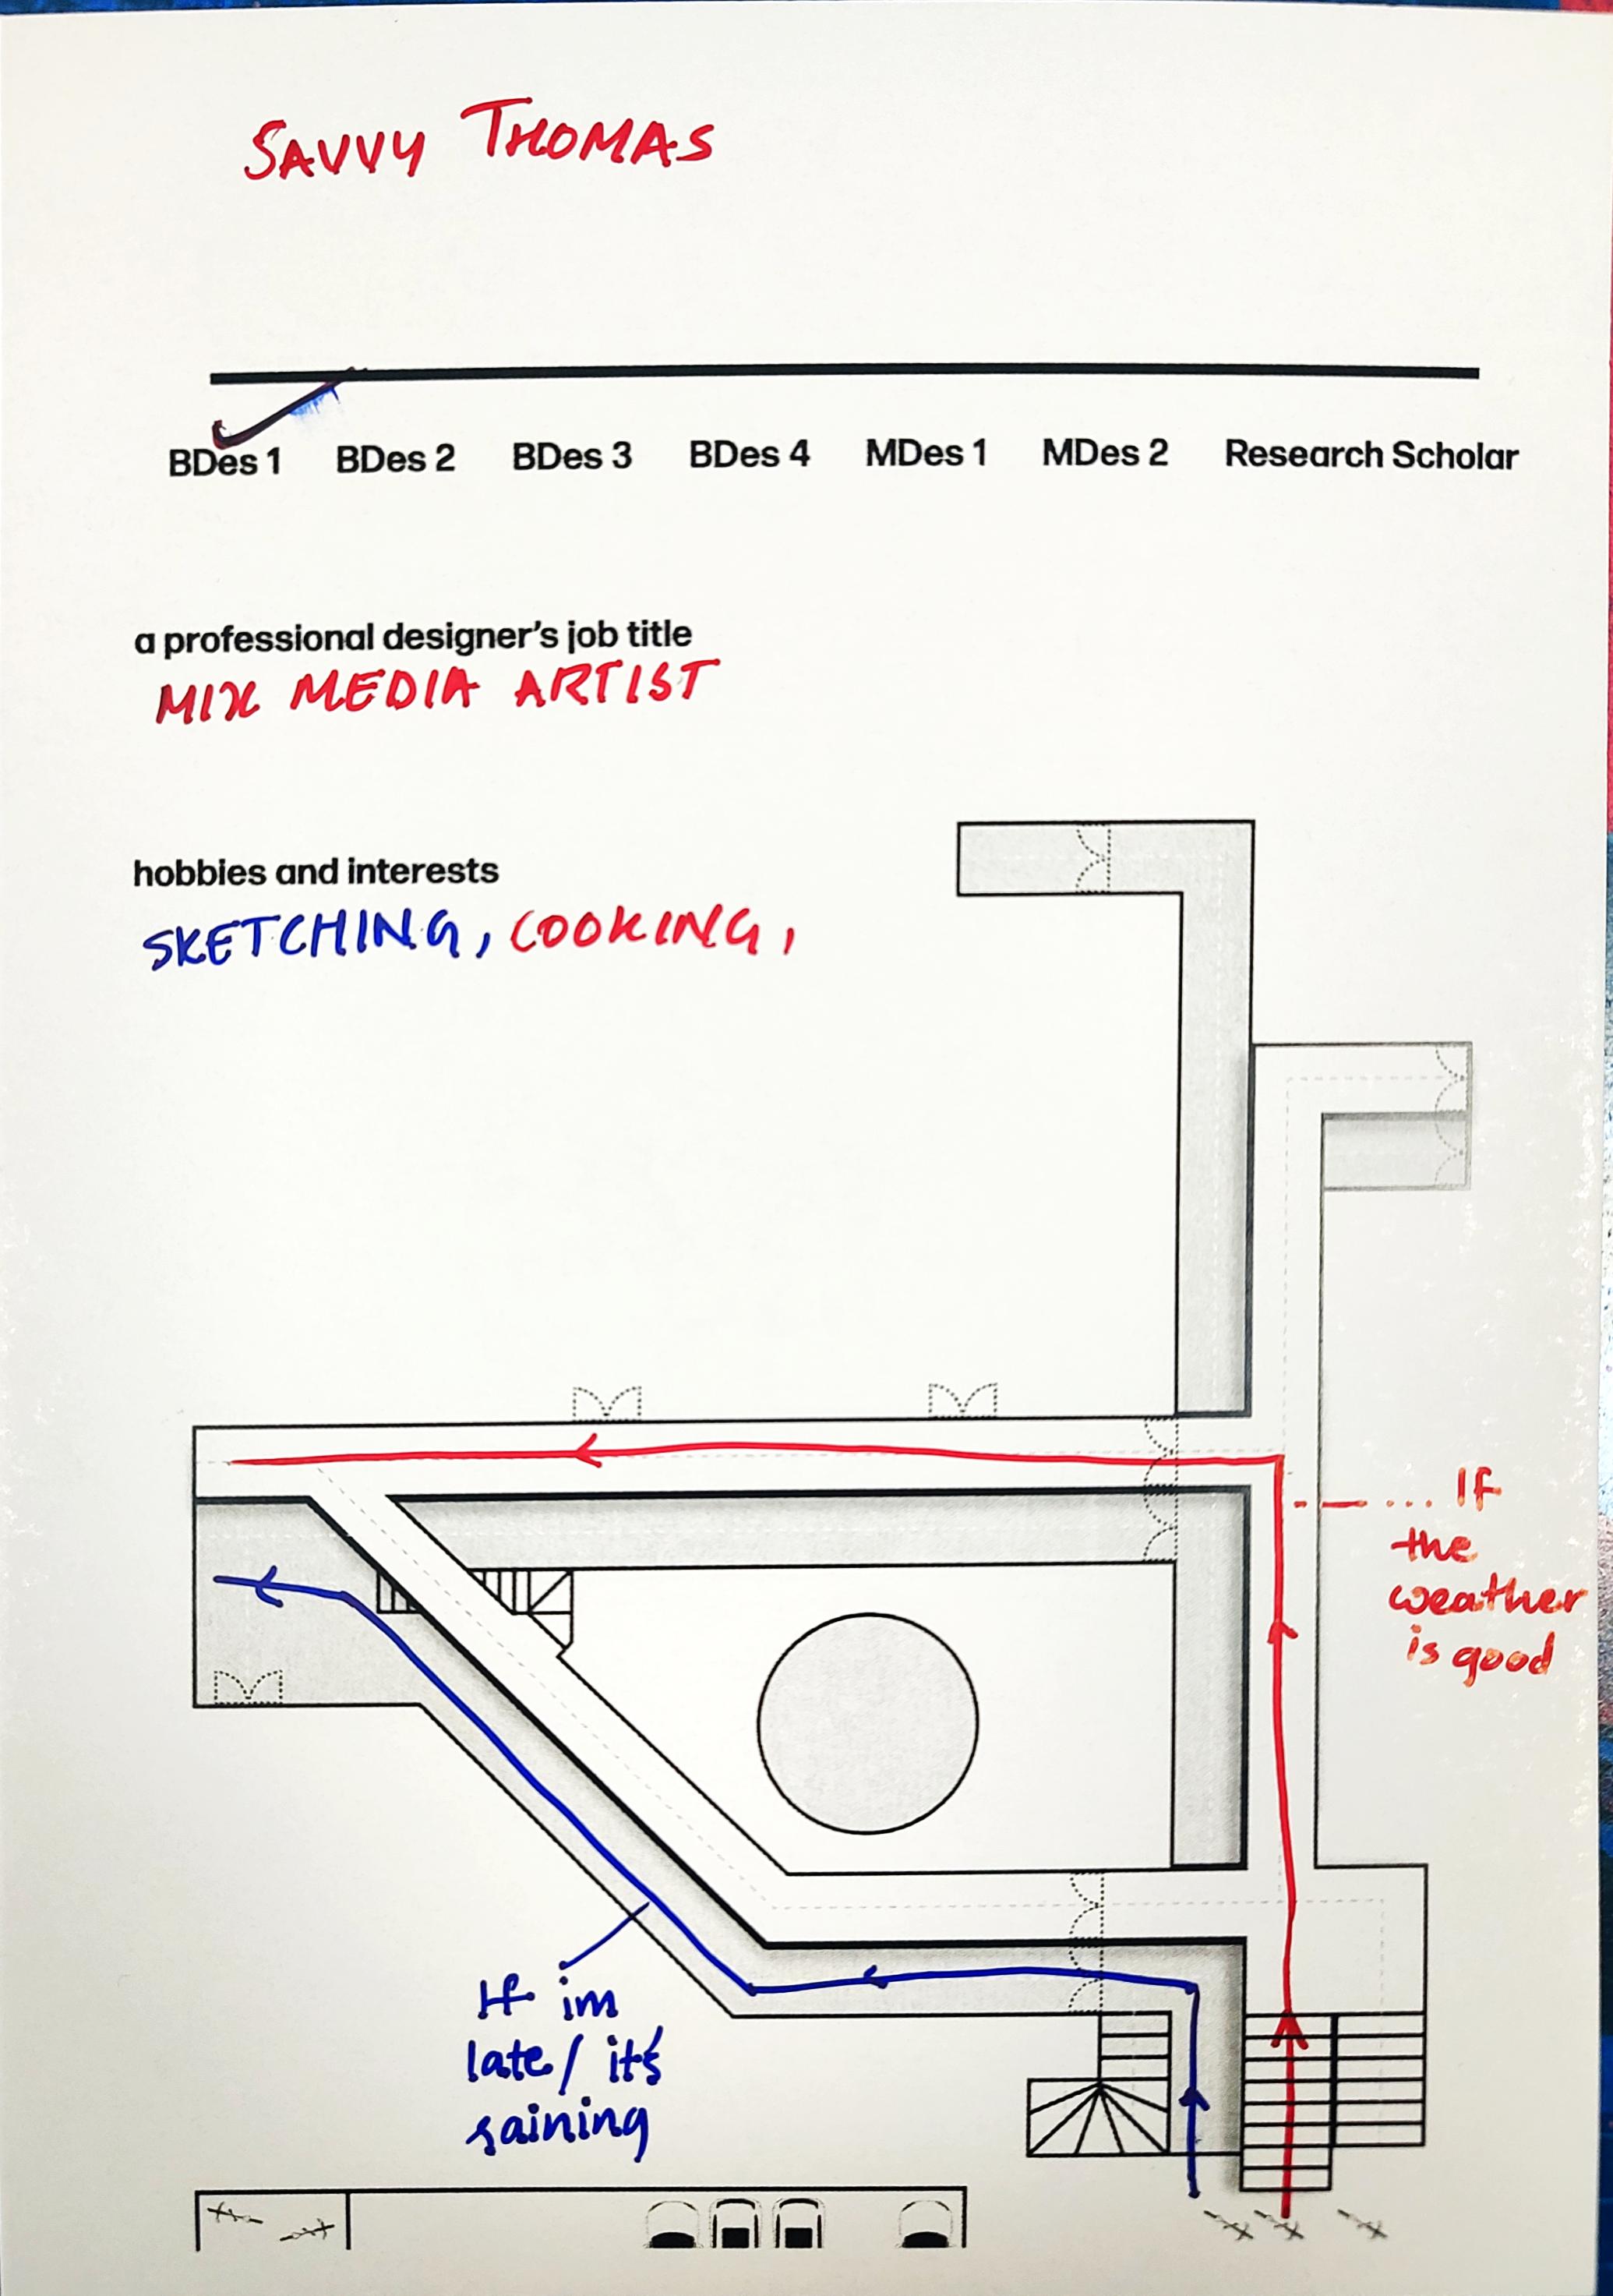 SAVVY THOMAS
BDes 1 BDes 2 BDes 3 BDes 4 MDes 1 MDes 2 Research Scholar
a professional designer's job title
MIX MEDIA ARTIST
hobbies and interests
SKETCHING, COOKING,
If
the
weather
is good
If im
late/ it's
raining